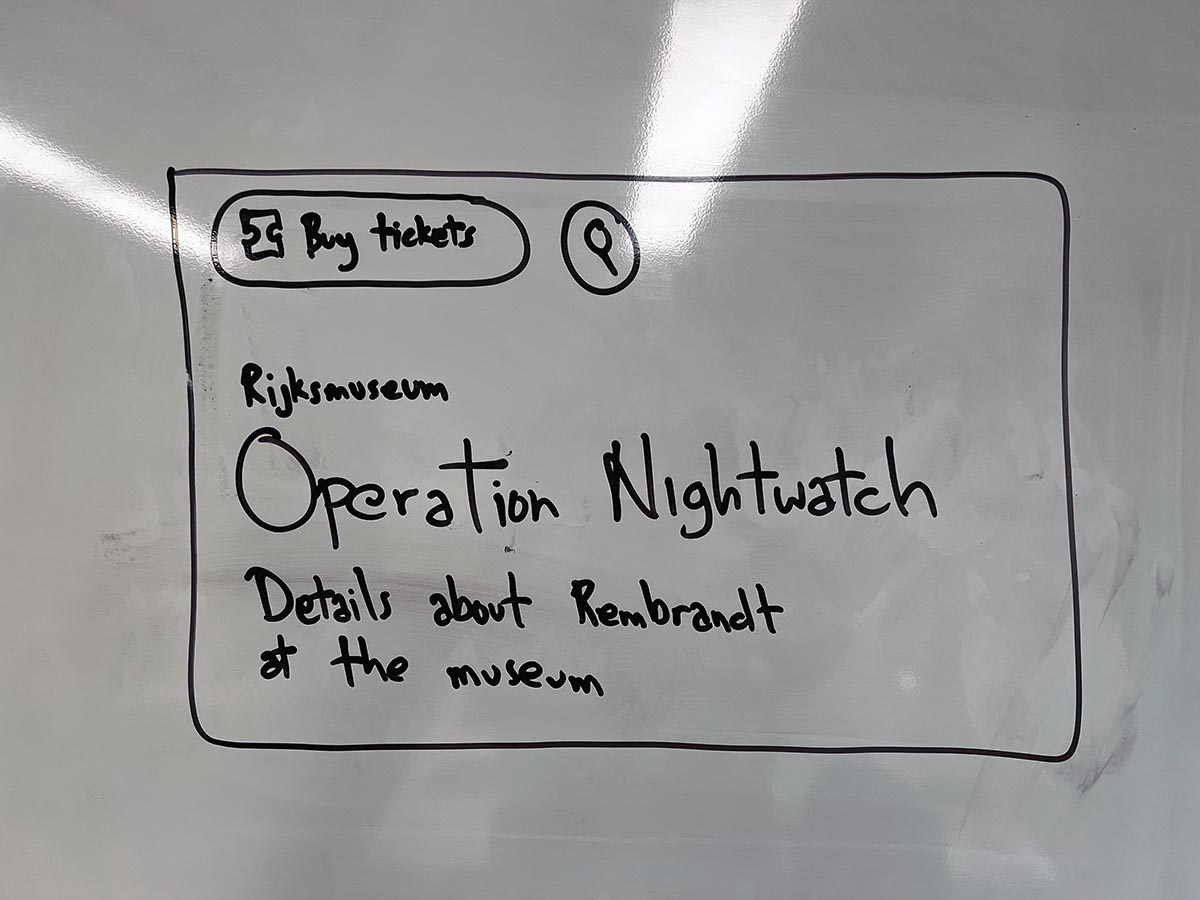 Buy tickets
Rijksmuseum
Operation Nightwatch
Details about Rembrandt
at the museum